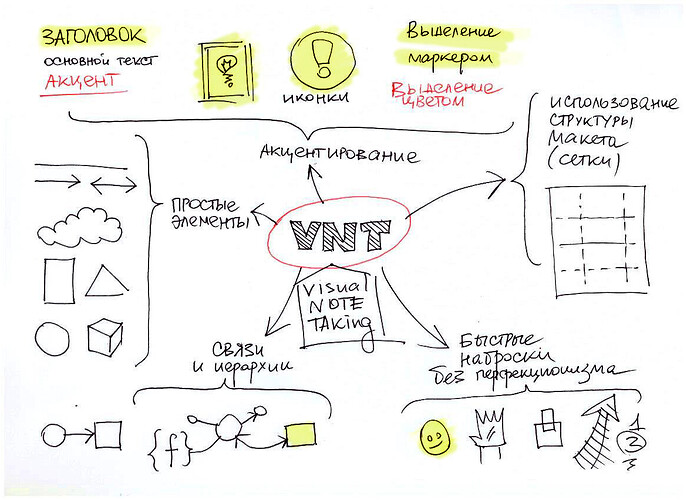 ЗАГОЛОВОК
основной текст
Акцент
иконки
Выделение
маркером
Выделение
цветом
Акцентирование
использование
структуры
макета
(сетки)
простые
элементы
VNT
Visual
NOTE
TAking
связи
и иерархии
Быстрые
наброски
без перфекционизма
{f}
1
2
3